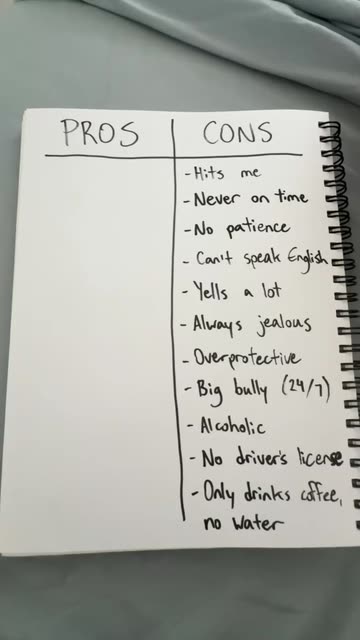 PROS
CONS
- Hits me
- Never on time
- No patience
- Can't speak English
- Yells a lot
- Always jealous
- Overprotective
- Big bully (24/7)
- Alcoholic
- No driver's license
- Only drinks coffee,
no water